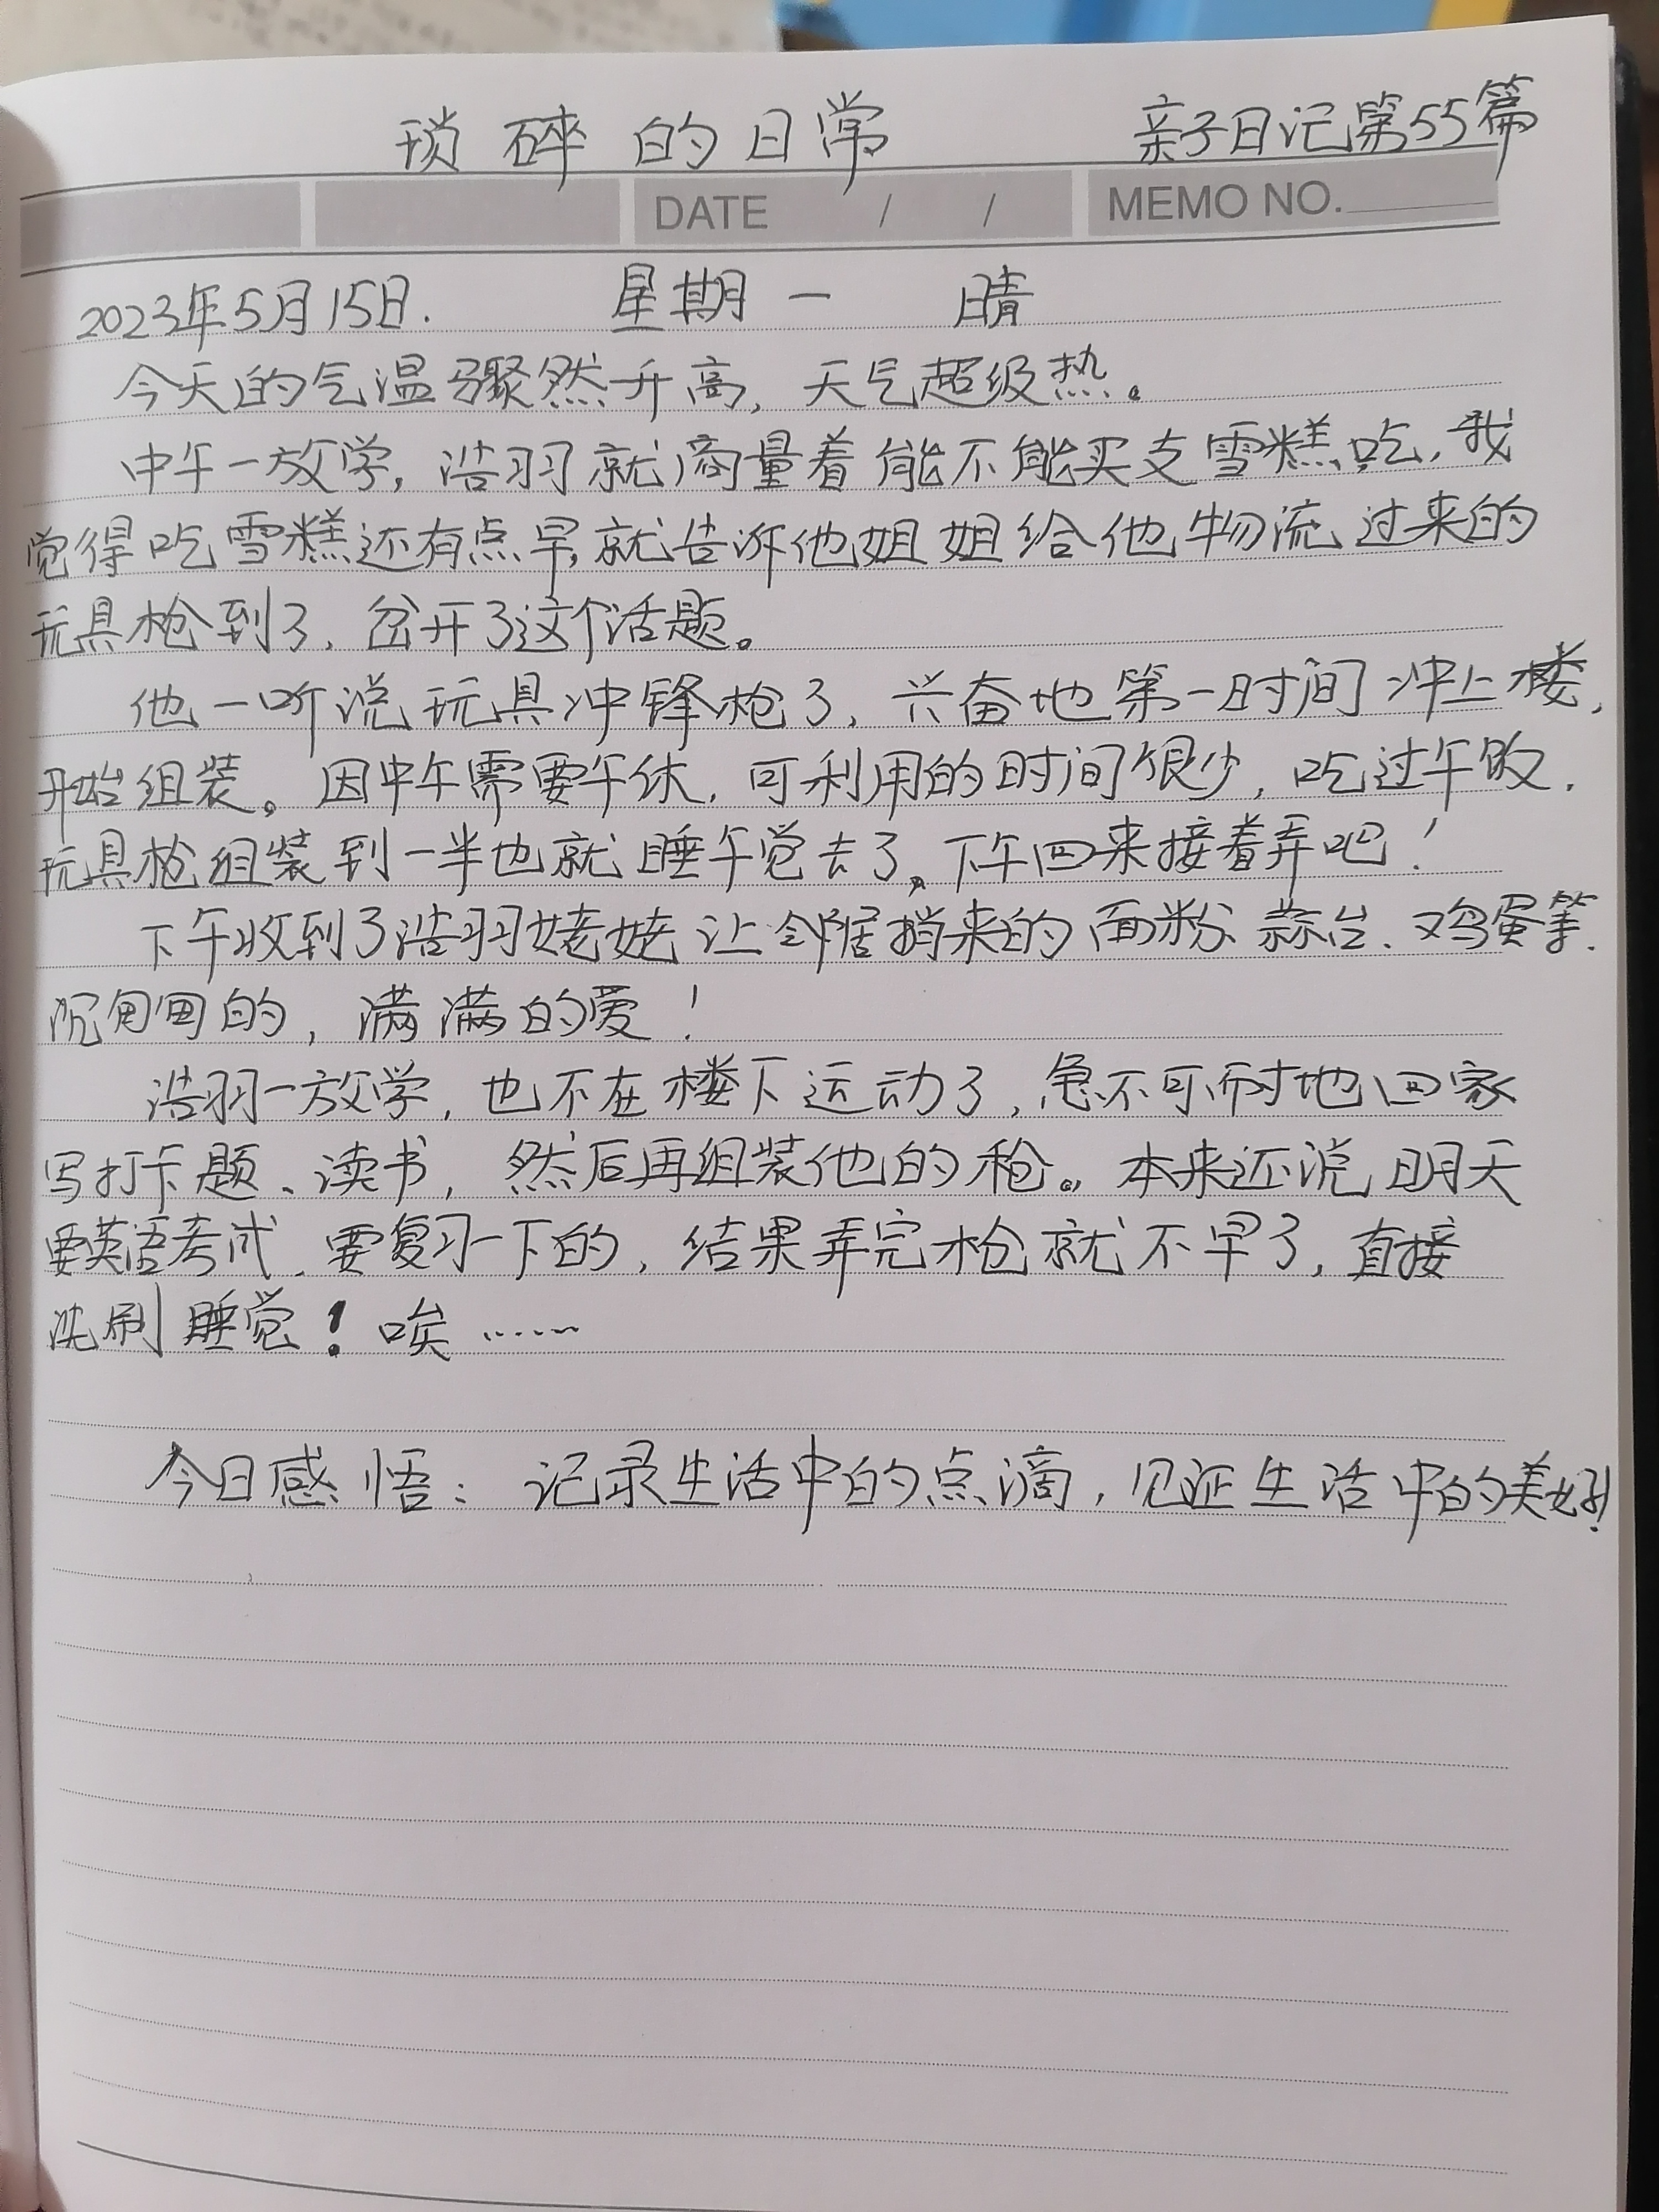 琐碎的日常 亲子日记第55篇
DATE / / MEMO NO.
2023年5月15日. 星期一 晴
今天的气温骤然升高，天气超级热。
中午一放学，浩羽就商量着能不能买支雪糕吃，我
觉得吃雪糕还有点早，就告诉他姐姐给他物流过来的
玩具枪到了，岔开了这个话题。
他一听说玩具冲锋枪了，兴奋地第一时间冲上楼，
开始组装。因中午需要午休，可利用的时间很少，吃过午饭，
玩具枪组装到一半也就睡午觉去了。下午回来接着弄吧！
下午收到了浩羽姥姥让邻居捎来的面粉、蒜台、鸡蛋等，
沉甸甸的，满满的爱！
浩羽一放学，也不在楼下运动了，急不可耐地回家
写打卡题、读书，然后再组装他的枪。本来还说明天
要英语考试，要复习一下的，结果弄完枪就不早了，直接
洗刷睡觉！唉……
今日感悟：记录生活中的点滴，见证生活中的美好！